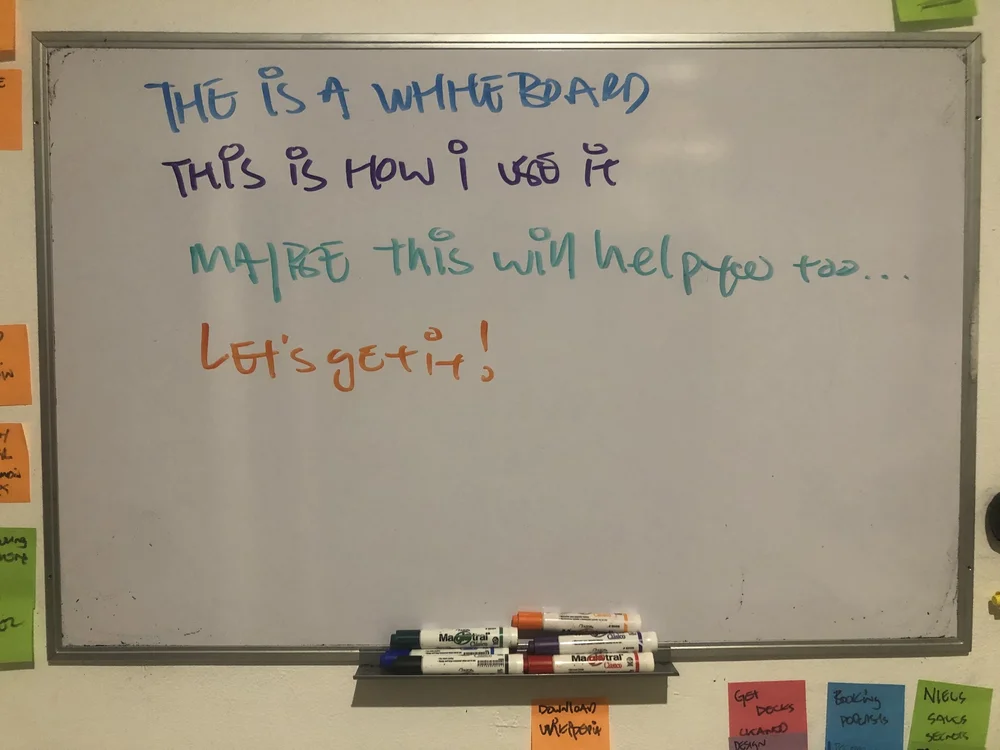 THE IS A WHITEBOARD
THIS IS HOW I USE IT
MAYBE this will help you too...
LET'S gET it!
Magistral
Clásico
Magistral
Clásico
DOWNLOAD
WIKIPEDIA
GET
DECKS
CLEANED
DESIGN
BOOKING
PODCASTS
NIELS
SALES
SECRETS